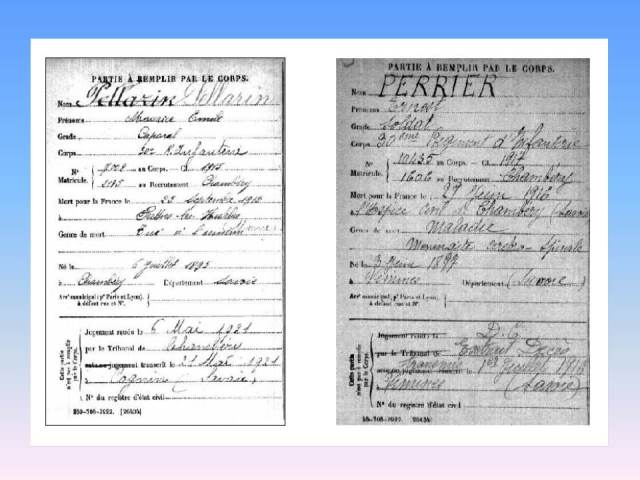 PARTIE À REMPLIR PAR LE CORPS.
Nom Pellarin Pellarin
Prénoms Maurice Emile
Grade Caporal
Corps d'Infanterie
N° Matricule. au Corps. — Cl. 1915
au Recrutement Chambéry
Mort pour la France le 22 Septembre
à
Genre de mort Tué à l'ennemi
Né le 6 Juillet 1895
à Chambéry Département Savoie
Arr¹ municipal (pʳ Paris et Lyon), à défaut rue et N°.
Cette partie n'est pas à remplir par le Corps.
Jugement rendu le 6 Mai 1921
par le Tribunal de Chambéry
jugement transcrit le Mai 1921
à Cognin (Savoie)
N° du registre d'état civil
PARTIE À REMPLIR PAR LE CORPS.
Nom PERRIER
Prénoms Ernest
Grade Soldat
Corps Régiment d'Infanterie
N° Matricule. 10435 au Corps. — Cl. 1917
1606 au Recrutement Chambéry
Mort pour la France le 27 Juin 1916
à l'Hospice civil de Chambéry (Savoie)
Genre de mort Maladie
cérébro-spinale
Né le 3 Juin 1897
à Vimines Département (Savoie)
Arr¹ municipal (pʳ Paris et Lyon), à défaut rue et N°.
Cette partie n'est pas à remplir par le Corps.
Jugement rendu le
par le Tribunal de
jugement transcrit le Juillet 1916
Vimines (Savoie)
N° du registre d'état civil